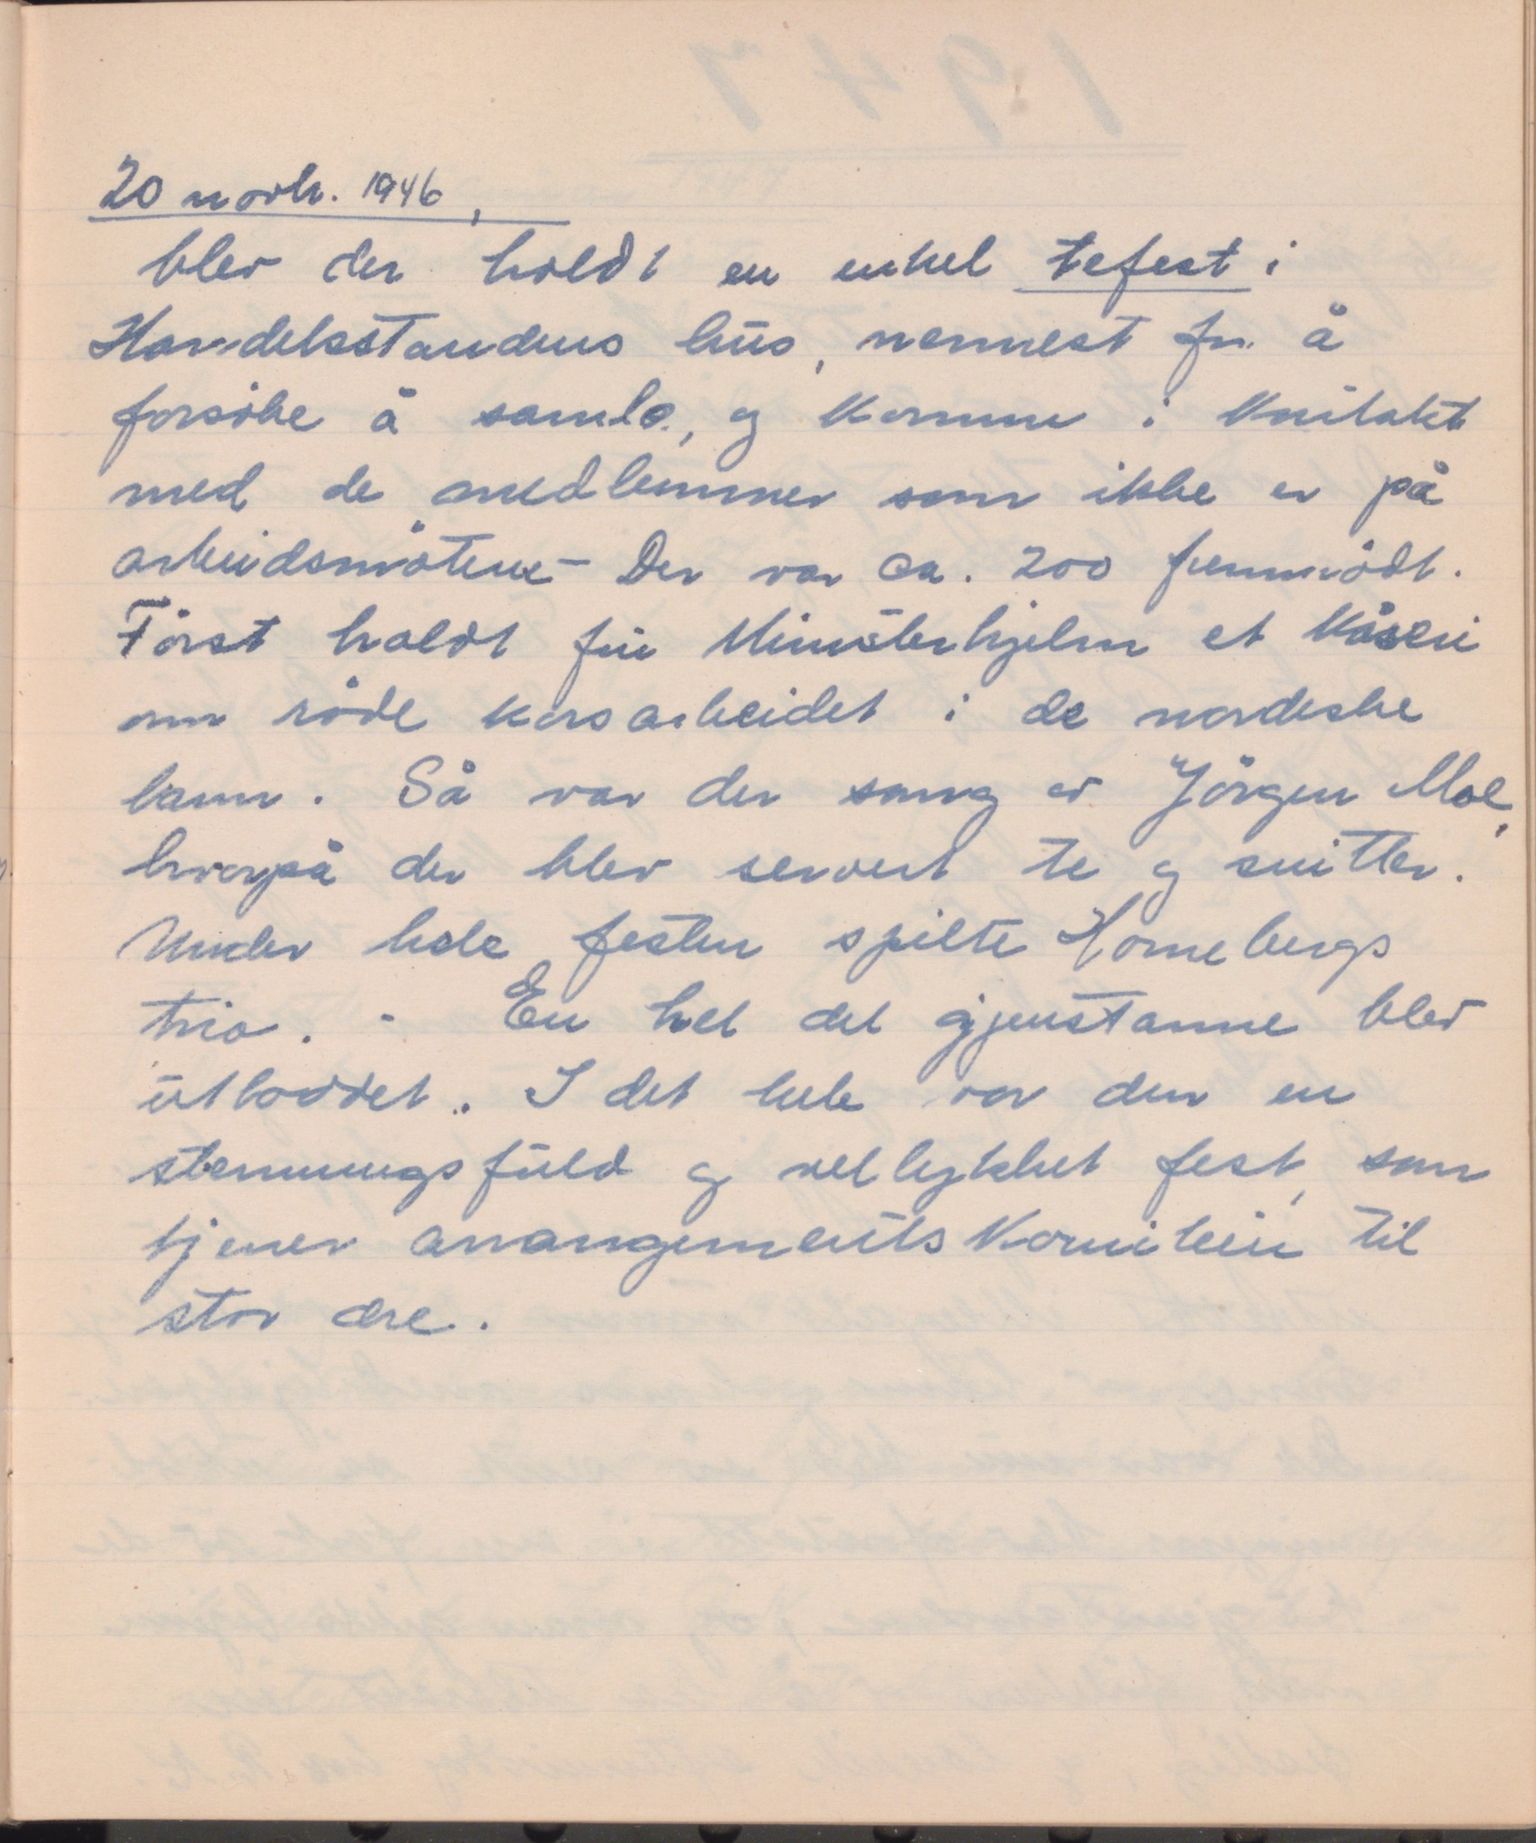 20 novbr. 1946,
blev der holdt en enkel tefest i
Handelsstandens hus, nermest for å
forsöke å samle, og komme i kontakt
med de medlemmer som ikke er på
arbeidsmötene – Der var ca. 200 fremmödt.
Först holdt fru Munsterhjelm et kåseri
om röde korsarbeidet i de nordiske
lann. Så var der sang av Jörgen Moe,
hvorpå der blev servert te og snitter.
Under hele festen spilte Hornebergs
trio. - En hel del gjenstanne blev
utloddet. I det hele var den en
stemningsfuld og vellykket fest, som
tjener arrangementskomiteen til
stor ære.